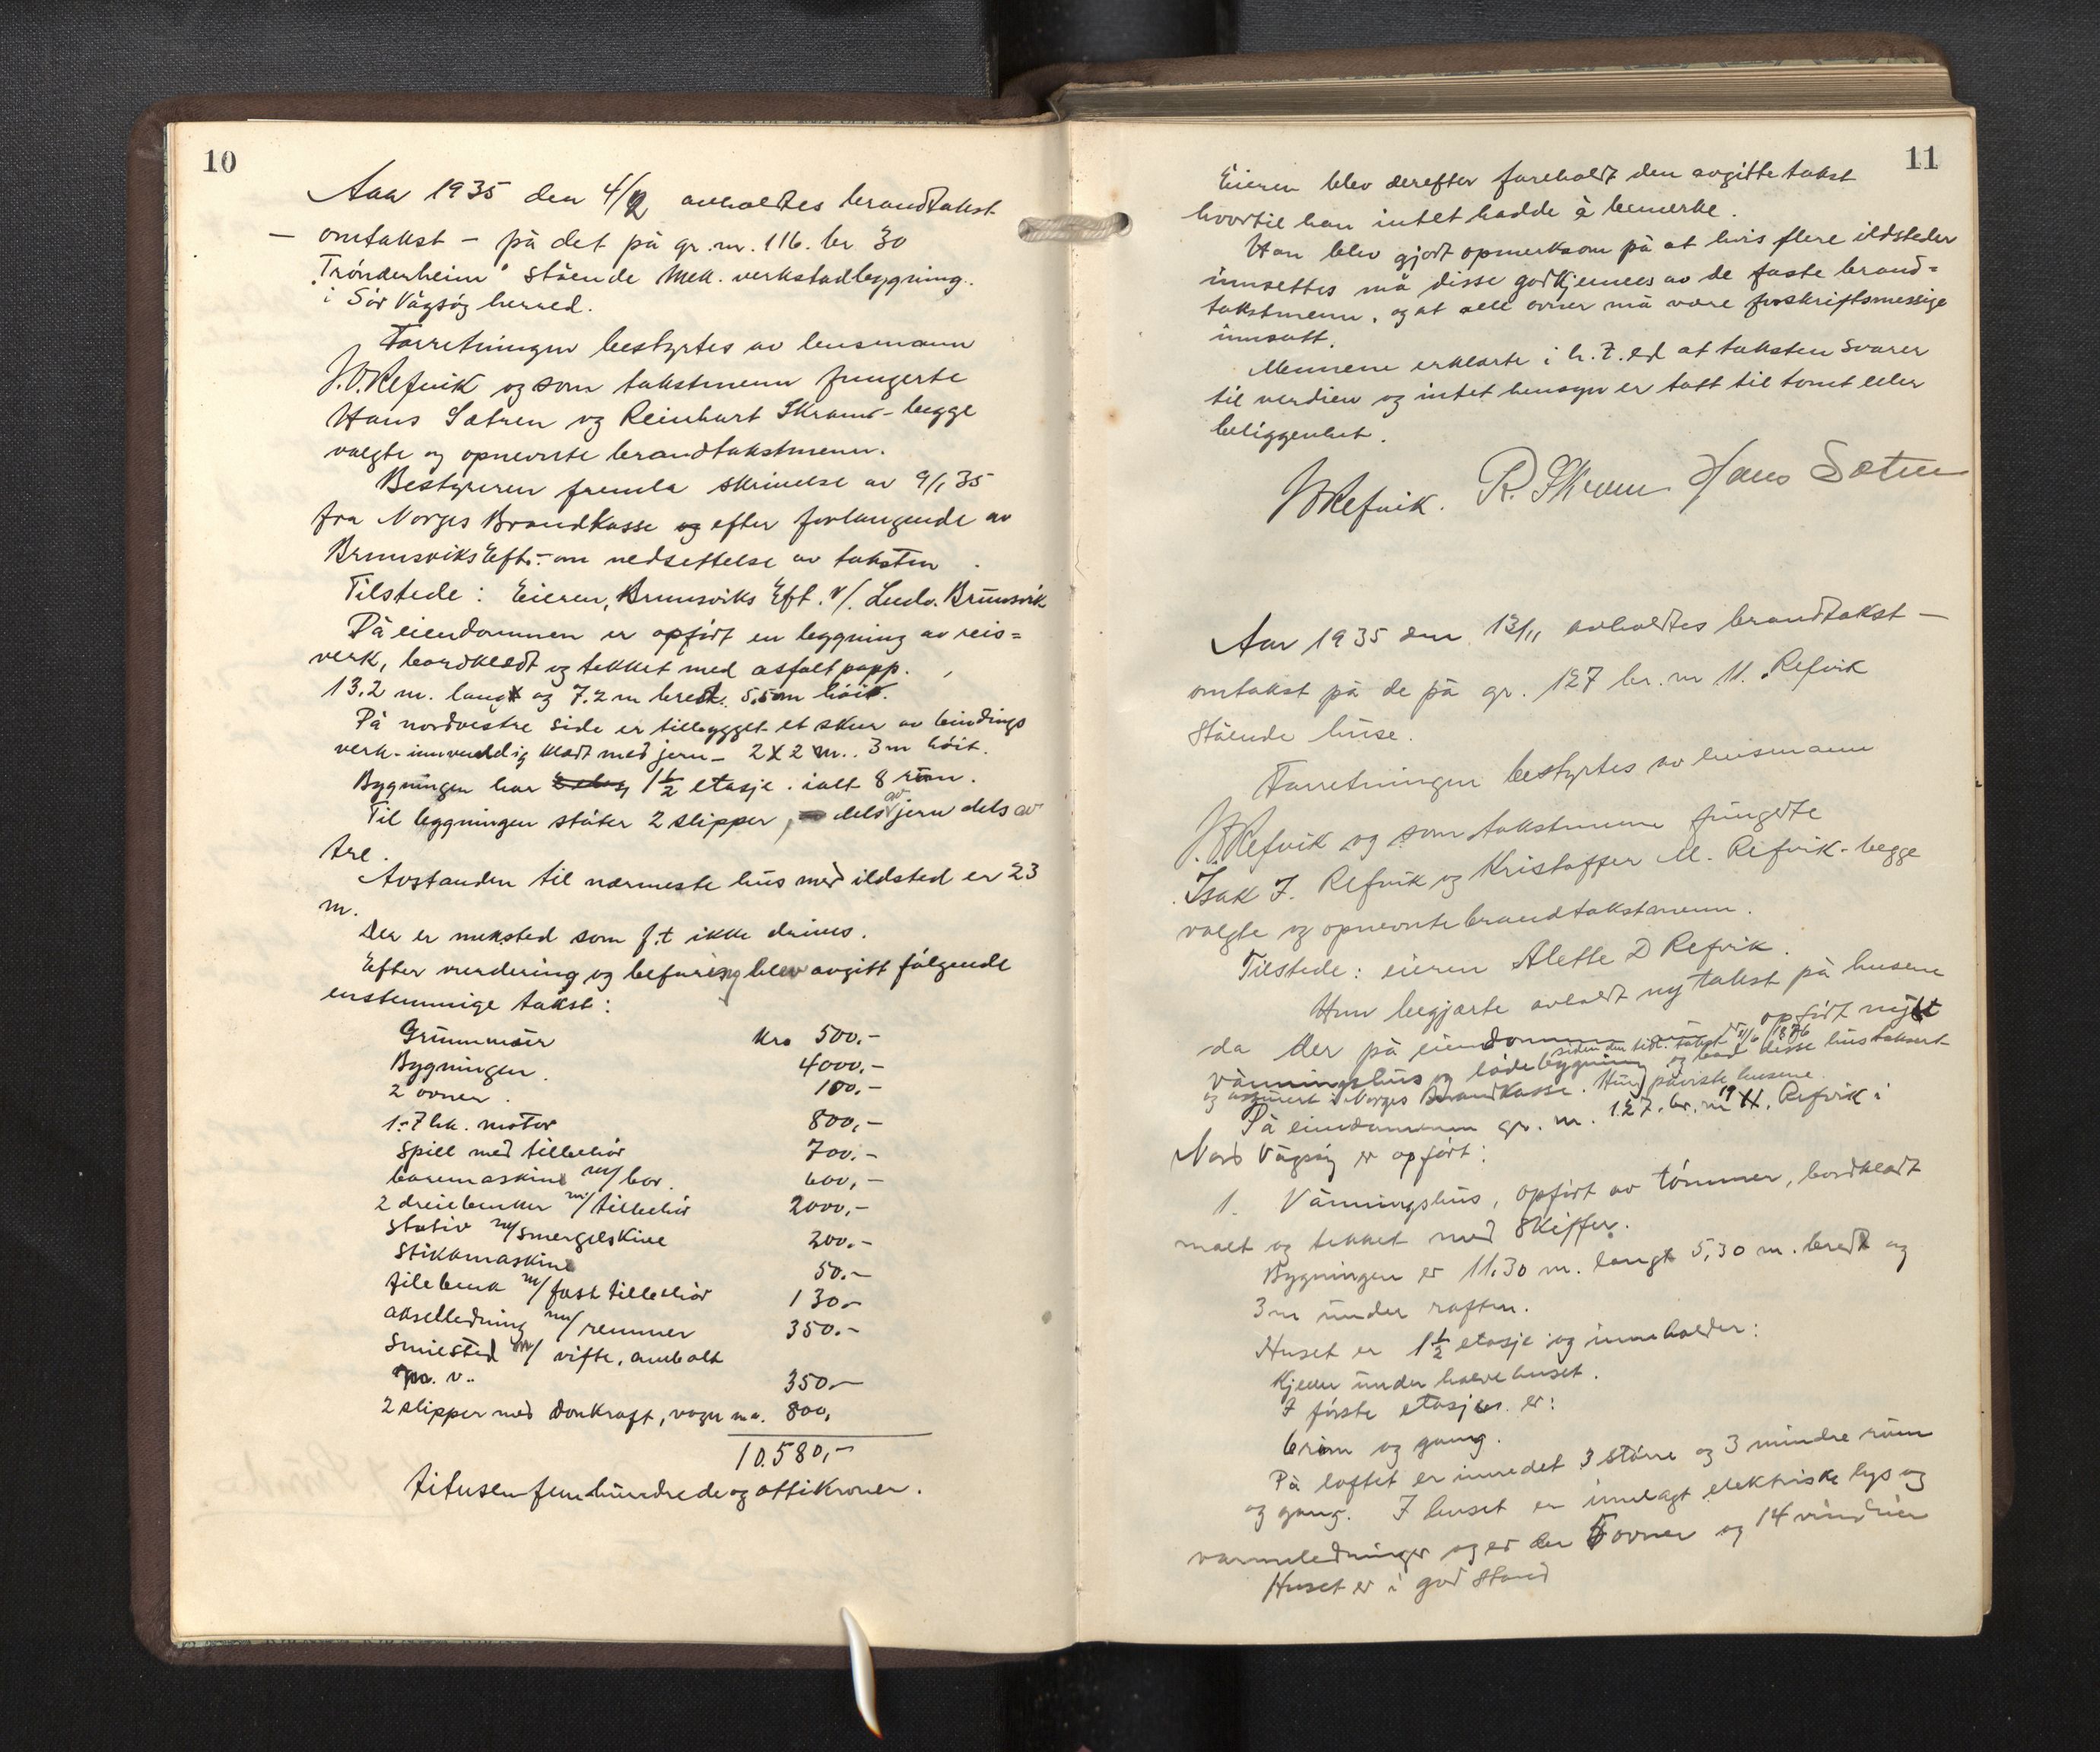 10
Aar 1935 den 4/2 avholdtes brandtakst
– omtakst – på det på gr. nr. 116. br 30
"Trönderheim" stående Mek. verkstadbygning.
i Sör Vågsöy herred.
Forretningen bestyrtes av lensmann
J. O. Refvik og som takstmenn fungerte
Hans Sætren og Reinhart Skram – begge
valgte og opnevnte brandtakstmenn.
Bestyreren fremla skrivelse av 9/1 35
fra Norges Brandkasse og efter forlangende av
Brunsviks Eft. – om nedsettelse av taksten.
Tilstede: Eieren, Brunsviks Eft. v/. Ludv. Brunsvik
På eiendommen er opfört en bygning av reis=
verk, bordklædt og tekket med asfaltpapp.
13.2 m. lang og 7.2 m bred. 5,5m höi.
På nordvestre side er tilbygget et skur av bindings
verk – innvendig klædt med jern – 2 x 2 m.. 3 m höit.
Bygningen har 1 1/2 etasje. ialt 8 rum.
Til bygningen stöter 2 slipper, dels av jern dels av
tre.
Avstanden til nærmeste hus med ildsted er 23
m.
Der er meksted som f.t ikke drives.
Efter vurdering og befaring blev avgitt fölgende
enstemmige takst:
Grunnmur kro 500.-
Bygningen. 4000,-
2 ovner. 100.-
1. 7 hk. motor 800,-
Spill med tilbehör 700.-
boremaskine m/ bor. 600,-
2 dreiebenker m/ tilbehör 2000,-
Stativ m/ smergelskive 200.-
Stikkmaskine 50.-
filebenk m/ fast tilbehör 130.-
akselledning m/ remmer 350.-
Smiested m/ vifte, ambolt
m. v.. 350.-
2 slipper med donkraft, vogn m.a. 800,
10.580,-
titusenfemhundredeogottikroner.
11
Eieren blev derefter foreholdt den avgitte takst
hvortil han intet hadde å bemerke.
Han blev gjort opmerksom på at hvis flere ildsteder
innsettes må disse godkjennes av de faste brand=
takstmenn, og at alle ovner må være forskriftsmessige
innsatt.
Mennene erklærte i h. t. ed at taksten svarer
til verdien og intet hensyn er tatt til tomt eller
beliggenhet.
J O Refvik. R. Skram Hans Sætren
Aar 1935 den 13/11 avholdtes brandtakst –
omtakst på de på gr. 127 br. nr 11. Refvik
stående huse.
Forretningen bestyrtes av lensmann
J. O. Refvik og som takstmenn fungerte
Isak J. Refvik og Kristoffer M. Refvik – begge
valgte og opnevnte brandtakstmenn.
Tilstede: eieren Alette D Refvik.
Hun begjærte avholdt ny takst på husene
da der på eiendommen siden den tidl. takst 1876 opfört nytt
våningshus og lödebygning og bad disse hus taksert
og assurert i Norges Brandkasse. Hun påviste husene.
På eiendommen gr. nr. 127. br. nr 19. Refvik i
Nord Vågsöy er opfört:
1. Våningshus, opfört av tömmer, bordklædt
malt og tekket med skiffer.
Bygningen er 11.30 m. lang 5,30 m. bred og
3 m under raften.
Huset er 1 1/2 etasje og inneholder:
Kjeller under halve huset.
I förste etasje er:
6 rum og gang.
På loftet er innredet 3 större og 3 mindre rum
og gang. I huset er innlagt elektriske lys og
varmeledninger og er der 5 ovner og 14 vinduer
Huset er i god stand